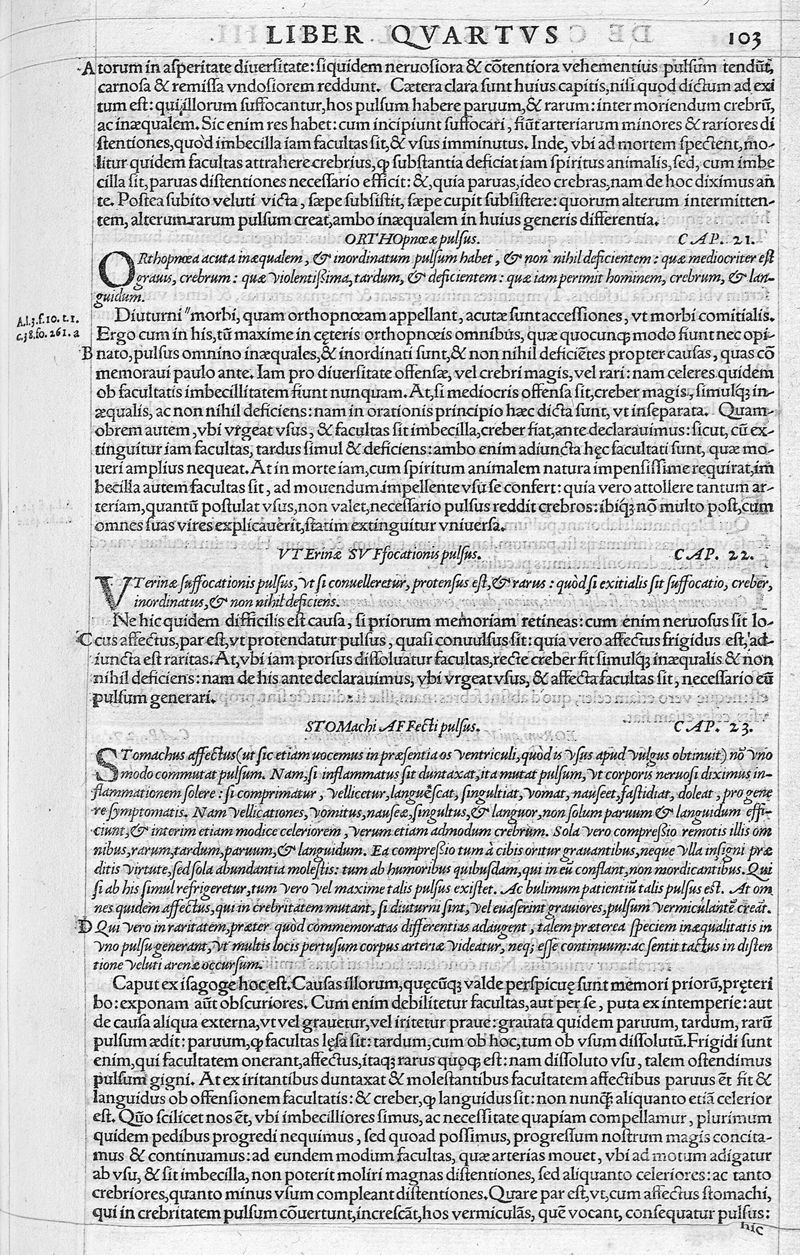 LIBER QVARTVS 103
A torum in asperitate diuersitate: siquidem neruosiora & cōtentiora vehementius pulsum tendūt,
carnosa & remissa vndosiorem reddunt. Cætera clara sunt huius capitis, nisi quod dictum ad exi
tum est: qui illorum suffocantur, hos pulsum habere paruum, & rarum: inter moriendum crebrū,
ac inæqualem. Sic enim res habet: cum incipiunt suffocari, fiūt arteriarum minores & rariores di
stentiones, quòd imbecilla iam facultas sit, & vsus imminutus. Inde, vbi ad mortem spectent, mo-
litur quidem facultas attrahere crebrius, ꝙ substantia deficiat iam spiritus animalis, sed, cum imbe
cilla sit, paruas distentiones necessario efficit: &, quia paruas, ideo crebras, nam de hoc diximus an
te. Postea subito veluti victa, sæpe subsistit, sæpe cupit subsistere: quorum alterum intermitten-
tem, alterum rarum pulsum creat, ambo inæqualem in huius generis differentia.
ORTHOpnœæ pulsus. CAP. 21.
ORthopnœa acuta inæqualem, & inordinatum pulsum habet, & non nihil deficientem: quæ mediocriter est
grauis, crebrum: quæ violentißima, tardum, & deficientem: quæ iam perimit hominem, crebrum, & lan-
guidum.
Diuturni " morbi, quam orthopnœam appellant, acutæ sunt accessiones, vt morbi comitialis.
A.l.3.f.10.t.1.
c.38.fo.261.a
Ergo cum in his, tū maxime in cęteris orthopnœis omnibus, quæ quocunq; modo fiunt nec opi
B nato, pulsus omnino inæquales, & inordinati sunt, & non nihil deficiētes propter causas, quas cō
memoraui paulo ante. Iam pro diuersitate offensæ, vel crebri magis, vel rari: nam celeres quidem
ob facultatis imbecillitatem fiunt nunquam. At, si mediocris offensa sit, creber magis, simulq; in-
æqualis, ac non nihil deficiens: nam in orationis principio hæc dicta sunt, vt inseparata. Quam-
obrem autem, vbi vrgeat vsus, & facultas sit imbecilla, creber fiat, ante declarauimus: sicut, cū ex-
tinguitur iam facultas, tardus simul & deficiens: ambo enim adiuncta hęc facultati sunt, quæ mo-
ueri amplius nequeat. At in morte iam, cum spiritum animalem natura impensissime requirat, im
becilla autem facultas sit, ad mouendum impellente vsu se confert: quia vero attollere tantum ar-
teriam, quantū postulat vsus, non valet, necessario pulsus reddit crebros: ibiq; nō multo post, cum
omnes suas vires explicauerit, statim extinguitur vniuersa.
VTErinæ SVFfocationis pulsus. CAP. 22.
VTerinæ suffocationis pulsus, vt si conuelleretur, protensus est, & rarus: quòd si exitialis sit suffocatio, creber,
inordinatus, & non nihil deficiens.
Ne hic quidem difficilis est causa, si priorum memoriam retineas: cum enim neruosus sit lo-
C cus affectus, par est, vt protendatur pulsus, quasi conuulsus sit: quia vero affectus frigidus est, ad-
iuncta est raritas. At, vbi iam prorsus dissoluatur facultas, recte creber fit simulq; inæqualis & non
nihil deficiens: nam de his ante declarauimus, vbi vrgeat vsus, & affecta facultas sit, necessario eū
pulsum generari.
STOMachi AFFecti pulsus. CAP. 23.
STomachus affectus (ut sic etiam uocemus in præsentia os ventriculi, quòd is vsus apud vulgus obtinuit) nō vno
modo commutat pulsum. Nam, si inflammatus sit duntaxat, ita mutat pulsum, vt corporis neruosi diximus in-
flammationem solere: si comprimatur, vellicetur, languēscat, singultiat, vomat, nauseet, fastidiat, doleat, pro gene
re symptomatis. Nam vellicationes, vomitus, nauseæ, singultus, & languor, non solum paruum & languidum effi-
ciunt, & interim etiam modice celeriorem, verum etiam admodum crebrum. Sola vero compreßio remotis illis om
nibus, rarum, tardum, paruum, & languidum. Ea compreßio tum à cibis oritur grauantibus, neque vlla insigni præ
ditis virtute, sed sola abundantia molestis: tum ab humoribus quibusdam, qui in eū conflant, non mordicantibus. Qui
si ab his simul refrigeretur, tum vero vel maxime talis pulsus existet. Ac bulimum patientiū talis pulsus est. At om
nes quidem affectus, qui in crebritatem mutant, si diuturni sint, vel euaserint grauiores, pulsum vermiculantē creāt.
D Qui vero in raritatem, præter quòd commemoratas differentias adaugent, talem præterea speciem inæqualitatis in
vno pulsu generant, vt multis locis pertusum corpus arteriæ videatur, neq; esse continuum: ac sentit tactus in disten
tione veluti arenæ occursum.
Caput ex isagoge hoc est. Causas illorum, quęcūq; valde perspicuę sunt memori priorū, pręteri
bo: exponam aūt obscuriores. Cum enim debilitetur facultas, aut per se, puta ex intemperie: aut
de causa aliqua externa, vt vel grauetur, vel iritetur praue: grauata quidem paruum, tardum, rarū
pulsum ædit: paruum, ꝙ facultas lęsa sit: tardum, cum ob hoc, tum ob vsum dissolutū. Frigidi sunt
enim, qui facultatem onerant, affectus, itaq; rarus quoq; est: nam dissoluto vsu, talem ostendimus
pulsum gigni. At ex iritantibus duntaxat & molestantibus facultatem affectibus paruus ēt fit &
languidus ob offensionem facultatis: & creber, ꝙ languidus sit: non nunq̃ aliquanto etiā celerior
est. Quo scilicet nos ēt, vbi imbecilliores simus, ac necessitate quapiam compellamur, plurimum
quidem pedibus progredi nequimus, sed quoad possimus, progressum nostrum magis concita-
mus & continuamus: ad eundem modum facultas, quæ arterias mouet, vbi ad motum adigatur
ab vsu, & sit imbecilla, non poterit moliri magnas distentiones, sed aliquanto celeriores: ac tanto
crebriores, quanto minus vsum compleant distentiones. Quare par est, vt, cum affectus stomachi,
qui in crebritatem pulsum cōuertunt, increscāt, hos vermiculās, quē vocant, consequatur pulsus:
hic